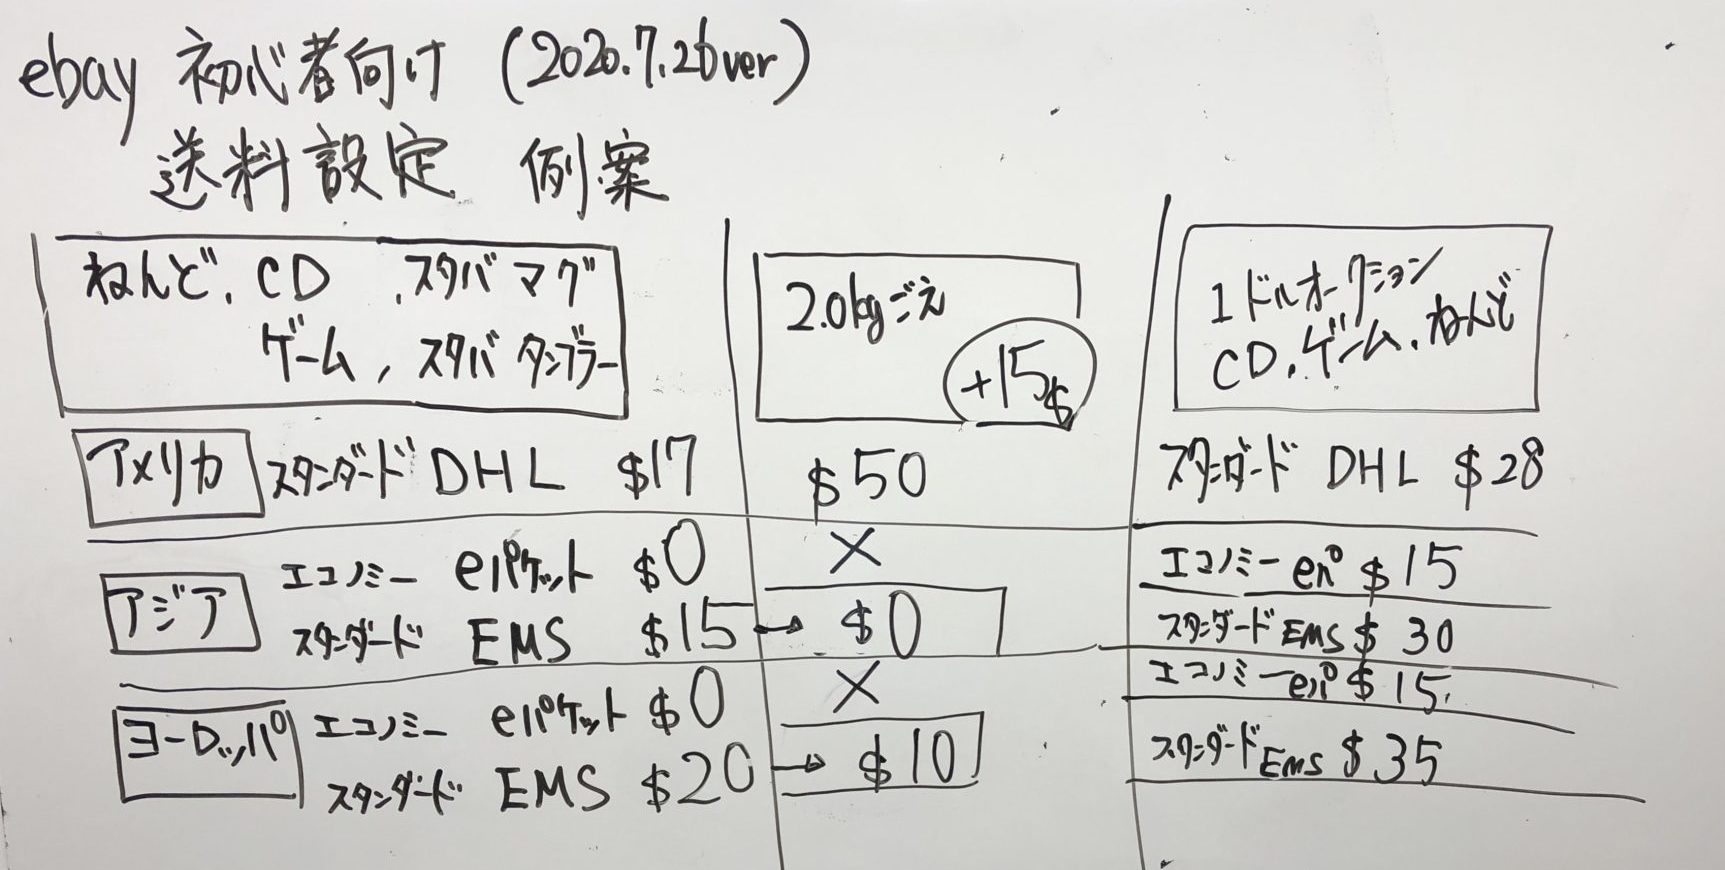 ebay 初心者向け (2020.7.26ver)
送料設定 例案
ねんど、CD、スタバ マグ
ゲーム、スタバ タンブラー
2.0kgごえ
+15$
1ドルオークション
CD、ゲーム、ねんど
アメリカ スタンダード DHL $17 $50 スタンダード DHL $28
エコノミー eパケット $0 × エコノミー eパ $15
アジア
スタンダード EMS $15 → $0 スタンダード EMS $30
エコノミー eパケット $0 × エコノミー eパ $15
ヨーロッパ
スタンダード EMS $20 → $10 スタンダード EMS $35